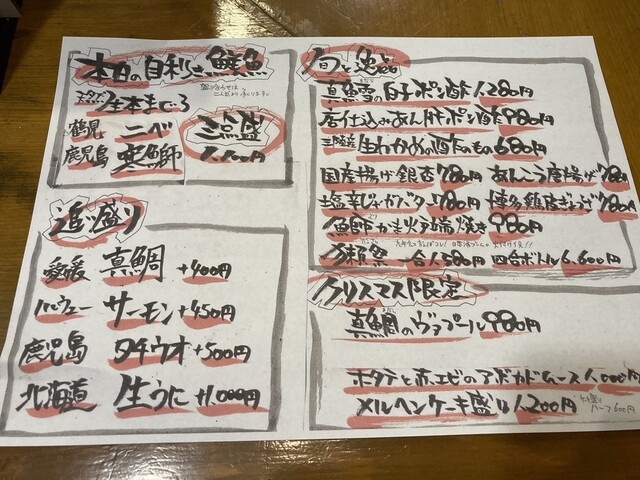 本日の目利き鮮魚
天然 生本まぐろ
鶴見 ニベ
鹿児島 寒鰤
三点盛
追い盛り
愛媛 真鯛 +400円
ノルウェー サーモン +450円
鹿児島 タチウオ +500円
北海道 生うに +1.000円
旬と逸品
真鱈雪の白子ポン酢 1.280円
店仕込みあん肝ポン酢 980円
三陸産 生わかめの酢のもの 680円
国産揚げ銀杏 780円 あんこう唐揚げ 780円
塩辛じゃがバター 780円 博多鶏皮ぎょうざ 780円
鰤かま火端焼き 980円
獺祭 一合 1.580円 四合ボトル 6.600円
クリスマス限定
真鯛のヴァプール 980円
ホタテと赤エビのアボカドムース 1.000円
メルヘンケーキ盛り 1.200円
ハーフ600円